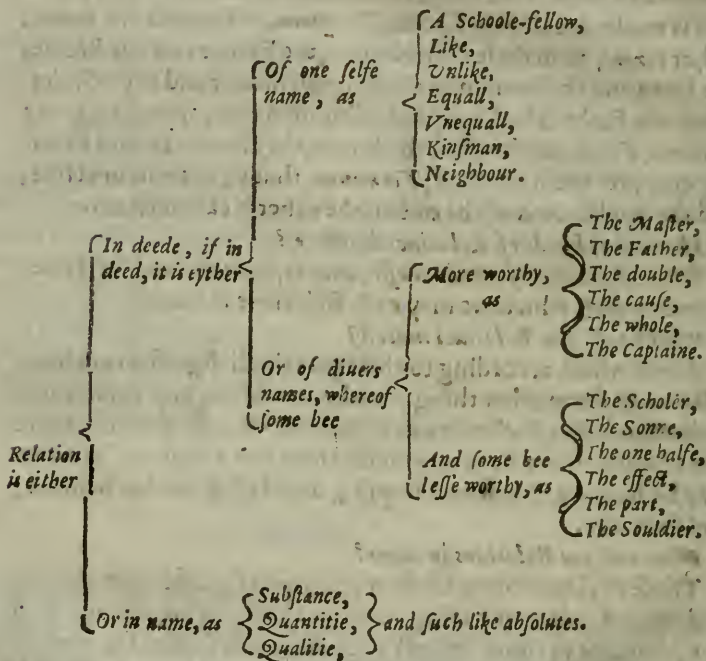 Relation
is either
In deede, if in
deed, it is eyther
Of one ſelfe
name, as
A Schoole-fellow,
Like,
Unlike,
Equall,
Vnequall,
Kinſman,
Neighbour.
Or of diuers
names, whereof
ſome bee
More worthy,
as
The Maſter,
The Father,
The double,
The cauſe,
The whole,
The Captaine.
And ſome bee
leſſe worthy, as
The Scholer,
The Sonne,
The one halfe,
The effect,
The part,
The Souldier.
Or in name, as
Subſtance,
Quantitie,
Qualitie,
and ſuch like abſolutes.